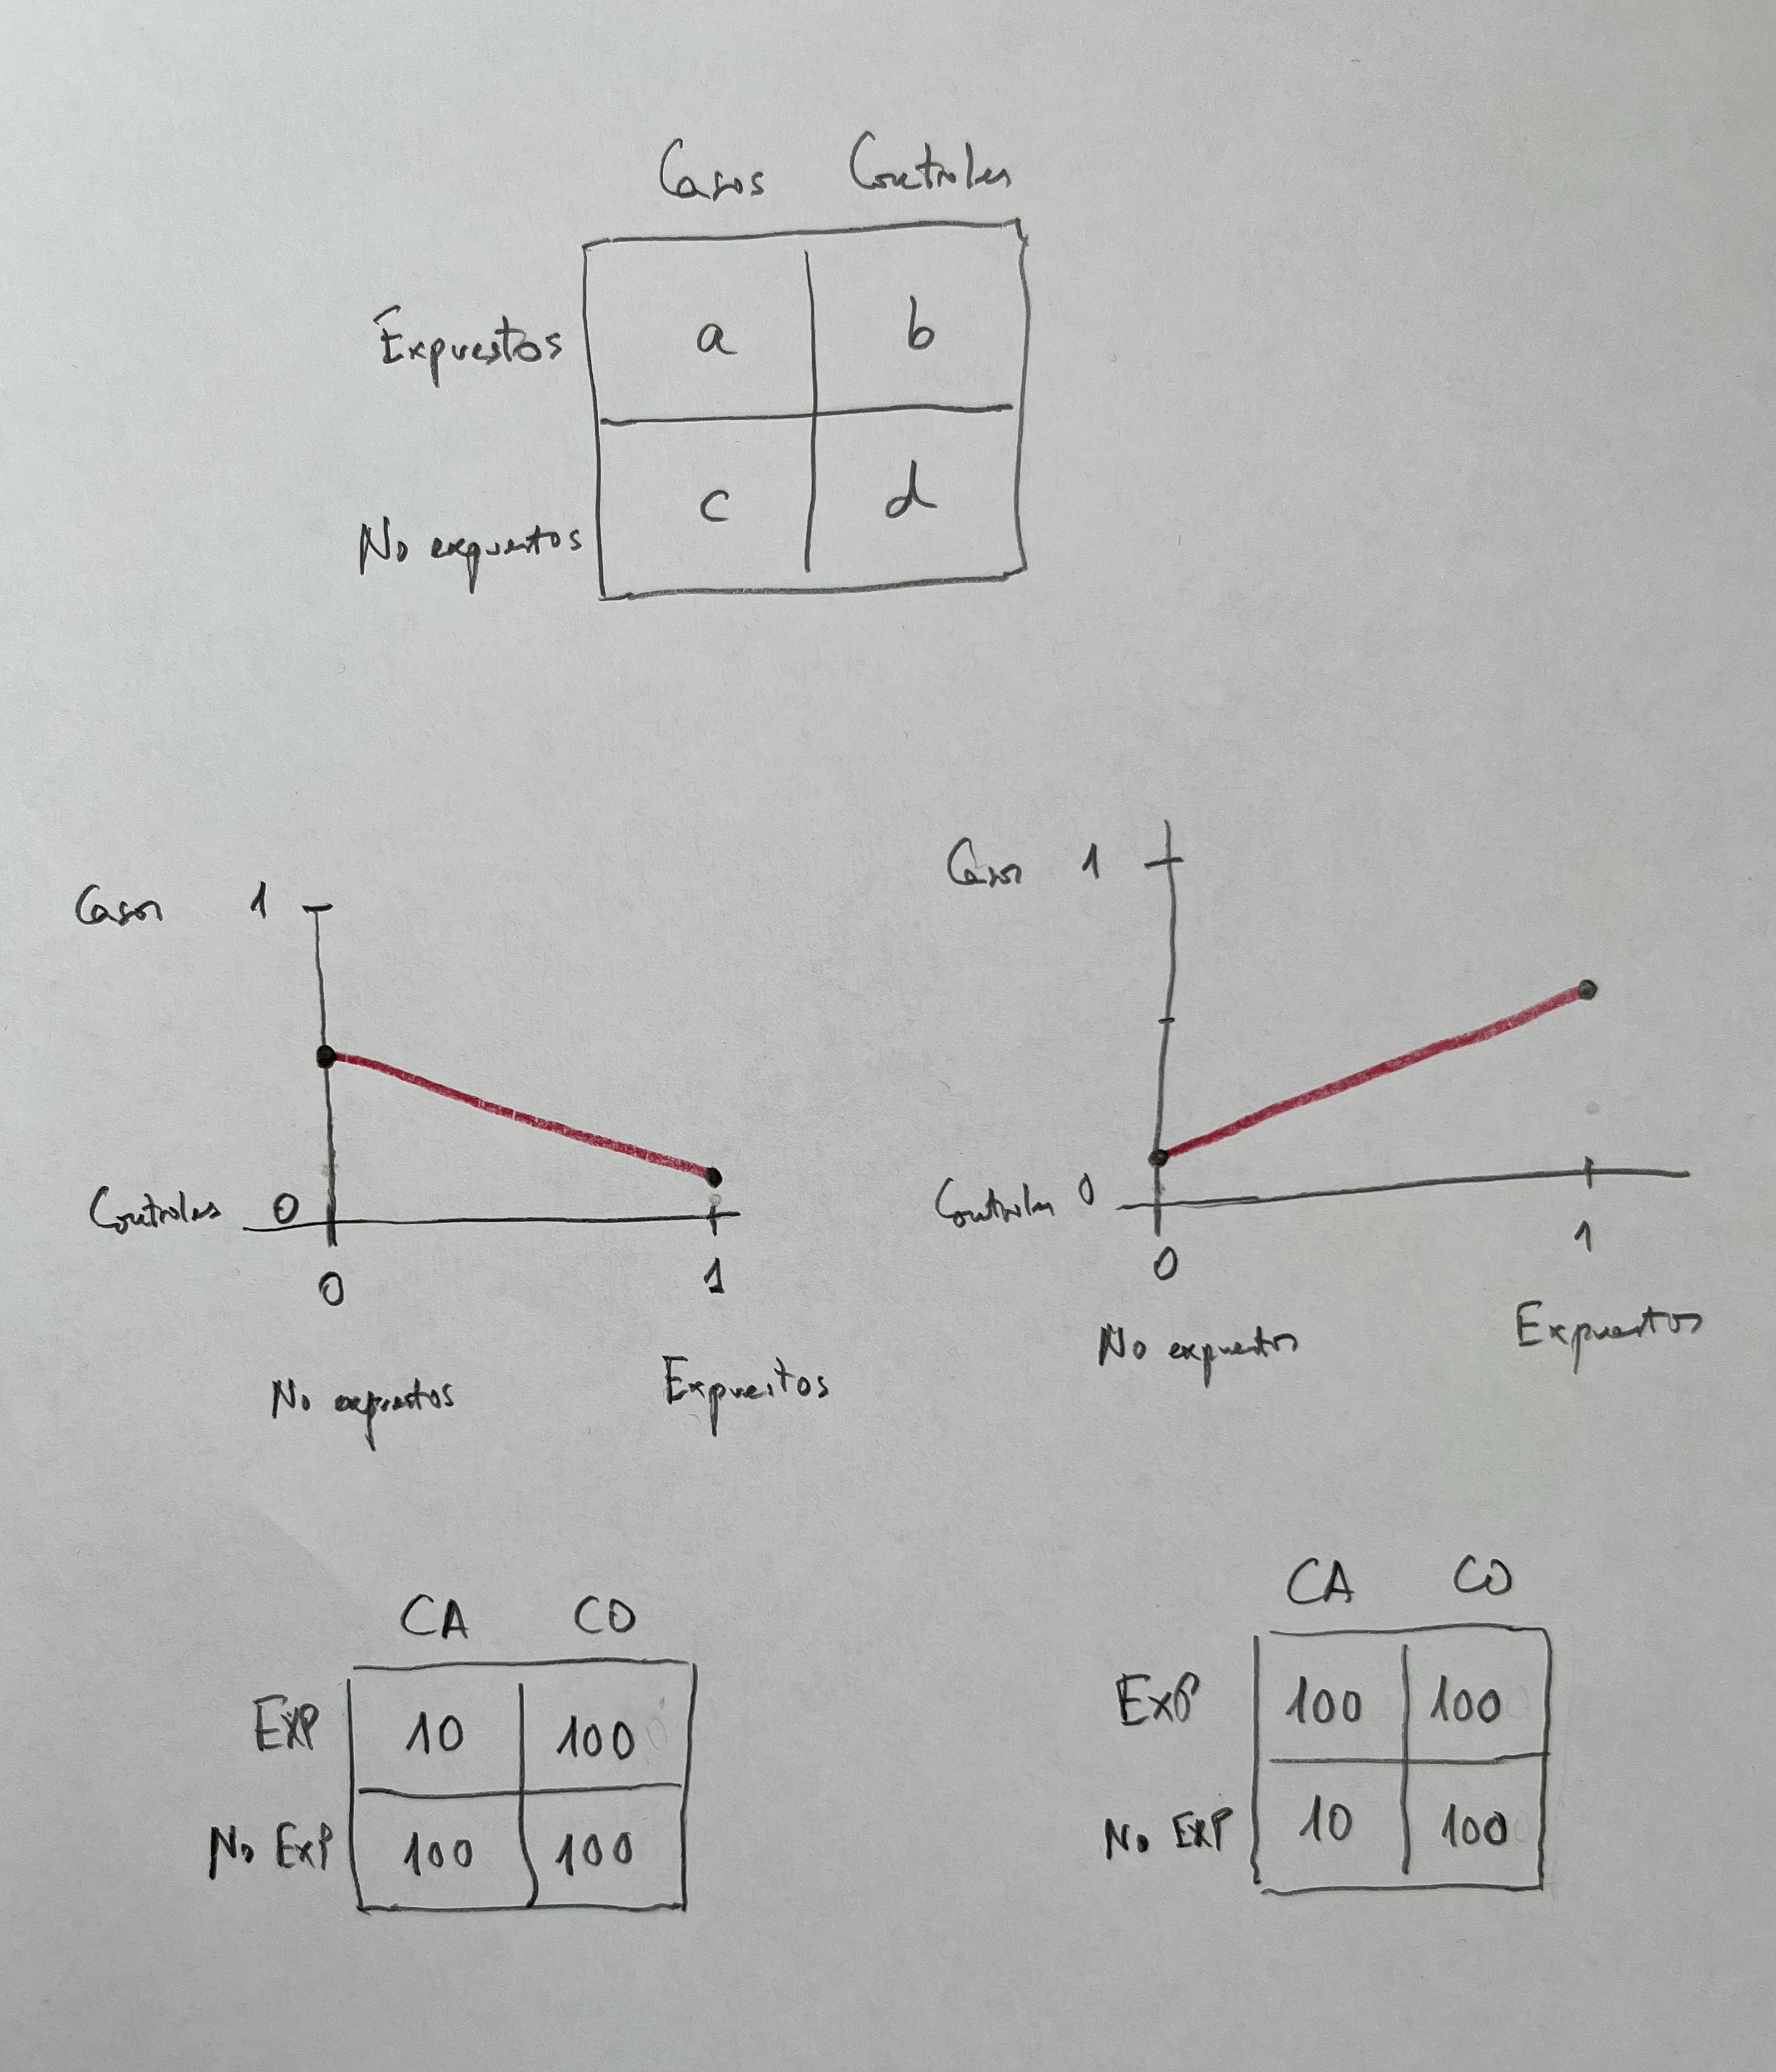 Casos Controles
Expuestos a b
No expuestos c d
Casos 1
Controles 0
0 1
No expuestos Expuestos
Casos 1
Controles 0
0 1
No expuestos Expuestos
CA CO
EXP 10 100
No EXP 100 100
CA CO
EXP 100 100
No EXP 10 100